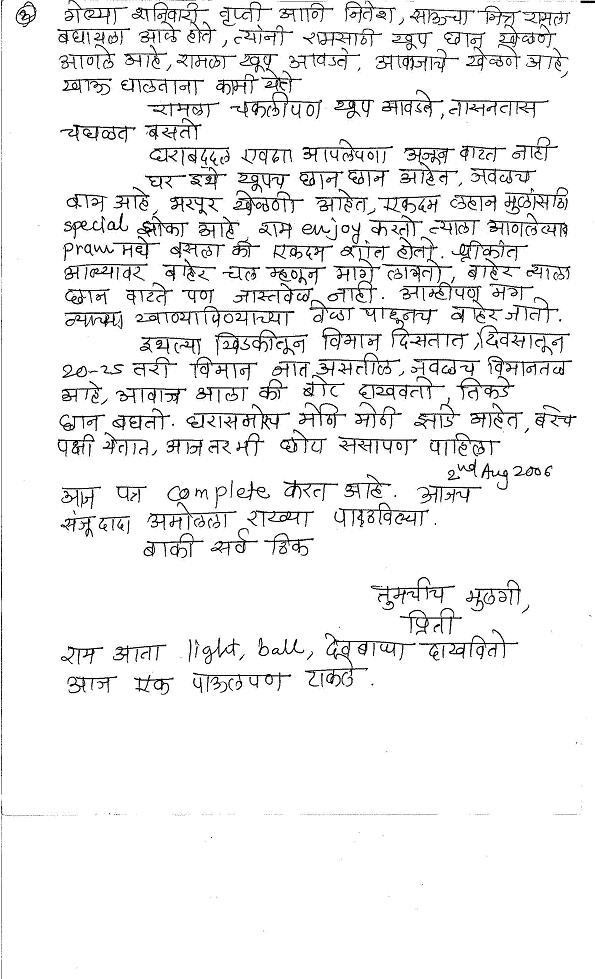 ③ गेल्या शनिवारी तृप्ती आणि नितेश, साऊचा मित्र रामला
बघायला आले होते, त्यांनी रामसाठी खूप छान खेळणे
आणले आहे, रामला खूप आवडते, आवाजाचे खेळणे आहे,
खाऊ घालताना कामी येते
रामला चकलीपण खूप आवडते, तासनतास
चघळत बसतो
घराबद्दल एवढा आपलेपणा अजून वाटत नाही
घर इथे खूपच छान छान आहेत, जवळच
बाग आहे, भरपूर खेळणी आहेत, एकदम लहान मुलांसाठी
special झोका आहे, राम enjoy करतो त्याला आणलेल्या
pram मधे बसला की एकदम शांत होतो. श्रीकांत
आल्यावर बाहेर चल म्हणून मागे लागतो, बाहेर त्याला
छान वाटते पण जास्तवेळ नाही. आम्हीपण मग
त्याच्या खाण्यापिण्याच्या वेळा पाहूनच बाहेर जातो.
इथल्या खिडकीतून विमान दिसतात, दिवसातून
20-25 तरी विमान जात असतील, जवळच विमानतळ
आहे, आवाज आला की बोट दाखवतो, तिकडे
छान बघतो. घरासमोरच मोठी मोठी झाडे आहेत, बरेच
पक्षी येतात, आज तर मी छोटा ससापण पाहिला
2nd Aug 2006
आज पत्र complete करत आहे. आजच
संजूदादा अमोलला राख्या पाठविल्या.
बाकी सर्व ठिक
तुमचीच मुलगी,
प्रिती
राम आता light, ball, देवबाप्पा दाखवितो
आज एक पाऊलपण टाकले.